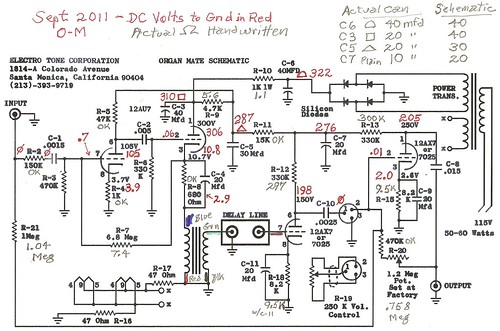 Sept 2011 - DC Volts to Gnd in Red
O-M Actual Ω Handwritten
Actual Can Schematic
C6 △ 40 mfd 40
C3 □ 20 " 40
C5 △ 20 " 30
C7 Plain 10 " 20
ELECTRO TONE CORPORATION
1814-A Colorado Avenue
Santa Monica, California 90404
(213)-393-9719
ORGAN MATE SCHEMATIC
C-6
40MFD
322
R-10
1K 1W
1.1
Silicon
Diodes
POWER
TRANS.
115V
50-60 Watts
INPUT
R-5
47K
OK
12AU7
310
C-3
40
Mfd
5.6
4.7K
R-9
300V
306
287
R-11
15K
OK
C-5
30 Mfd
276
C-7
20 Mfd
300K
R-13
330K
205
250V
12AX7
or
7025
C-8
.015
R-2
150K
OK
C-1
.0015
.7
R-3
470K
105V
105
3.7V
1K
R-4
3.9
C-2
.005
R-6
330
K
.06
10.7V
10.8
OK
R-8
680
Ohm
C-4
20
Mfd
2.9
R-12
330K
297
198
150V
C-10
.0025
12AX7
or
7025
.01
2.0
9.5K
8.2
K
R-15
2.6V
C-9
20
Mfd
R-7
6.8 Meg
7.4
R-21
1Meg
1.04
Meg
Blue
Grn
Red
Blk
DELAY LINE
C-11
20 Mfd
R-18
8.2
K
9.5K
w/c11
R-19
250 K Vol.
Control
470K
R-20
OK
1.2 Meg
Pot.
Set at
Factory
.758
Meg
OUTPUT
R-17
47 Ohm
4 9 5
4 9 5
X
X
47 Ohm R-16